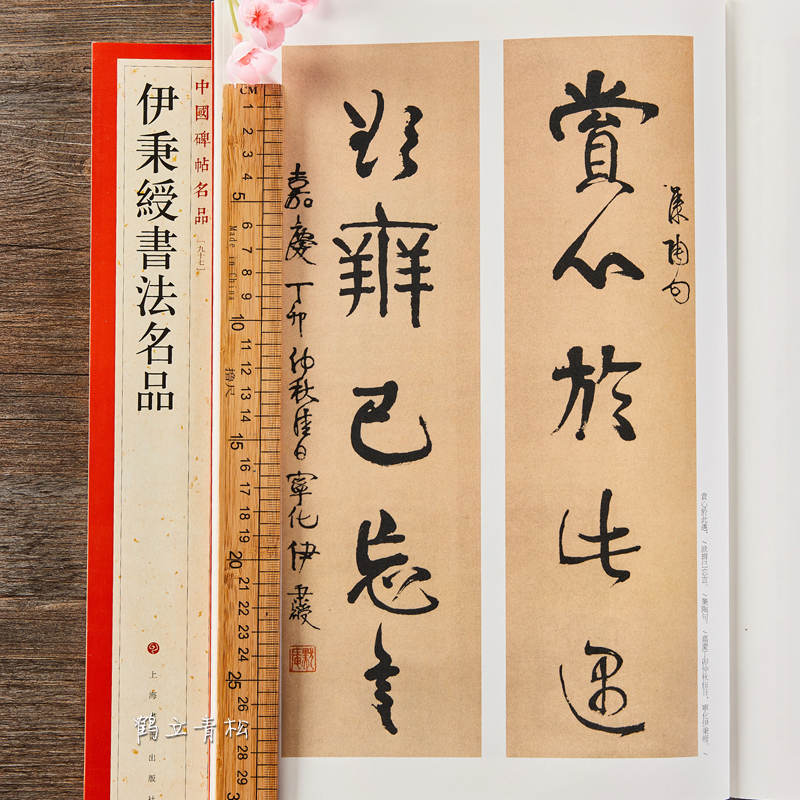 賞心於此遇
集陶句
欲辨已忘言
嘉慶丁卯仲秋佳日寧化伊秉綬
賞心於此遇,/欲辨已忘言。/集陶句。/嘉慶丁卯仲秋佳日,寧化伊秉綬。/
中國碑帖名品
[九十七]
伊秉綬書法名品
上海
出版社
鶴立青松
CM
1 2 3 4 5 6 7 8 9 10 11 12 13 14 15 16 17 18 19 20 21 22 23 24 25 26 27 28 29
Made in China